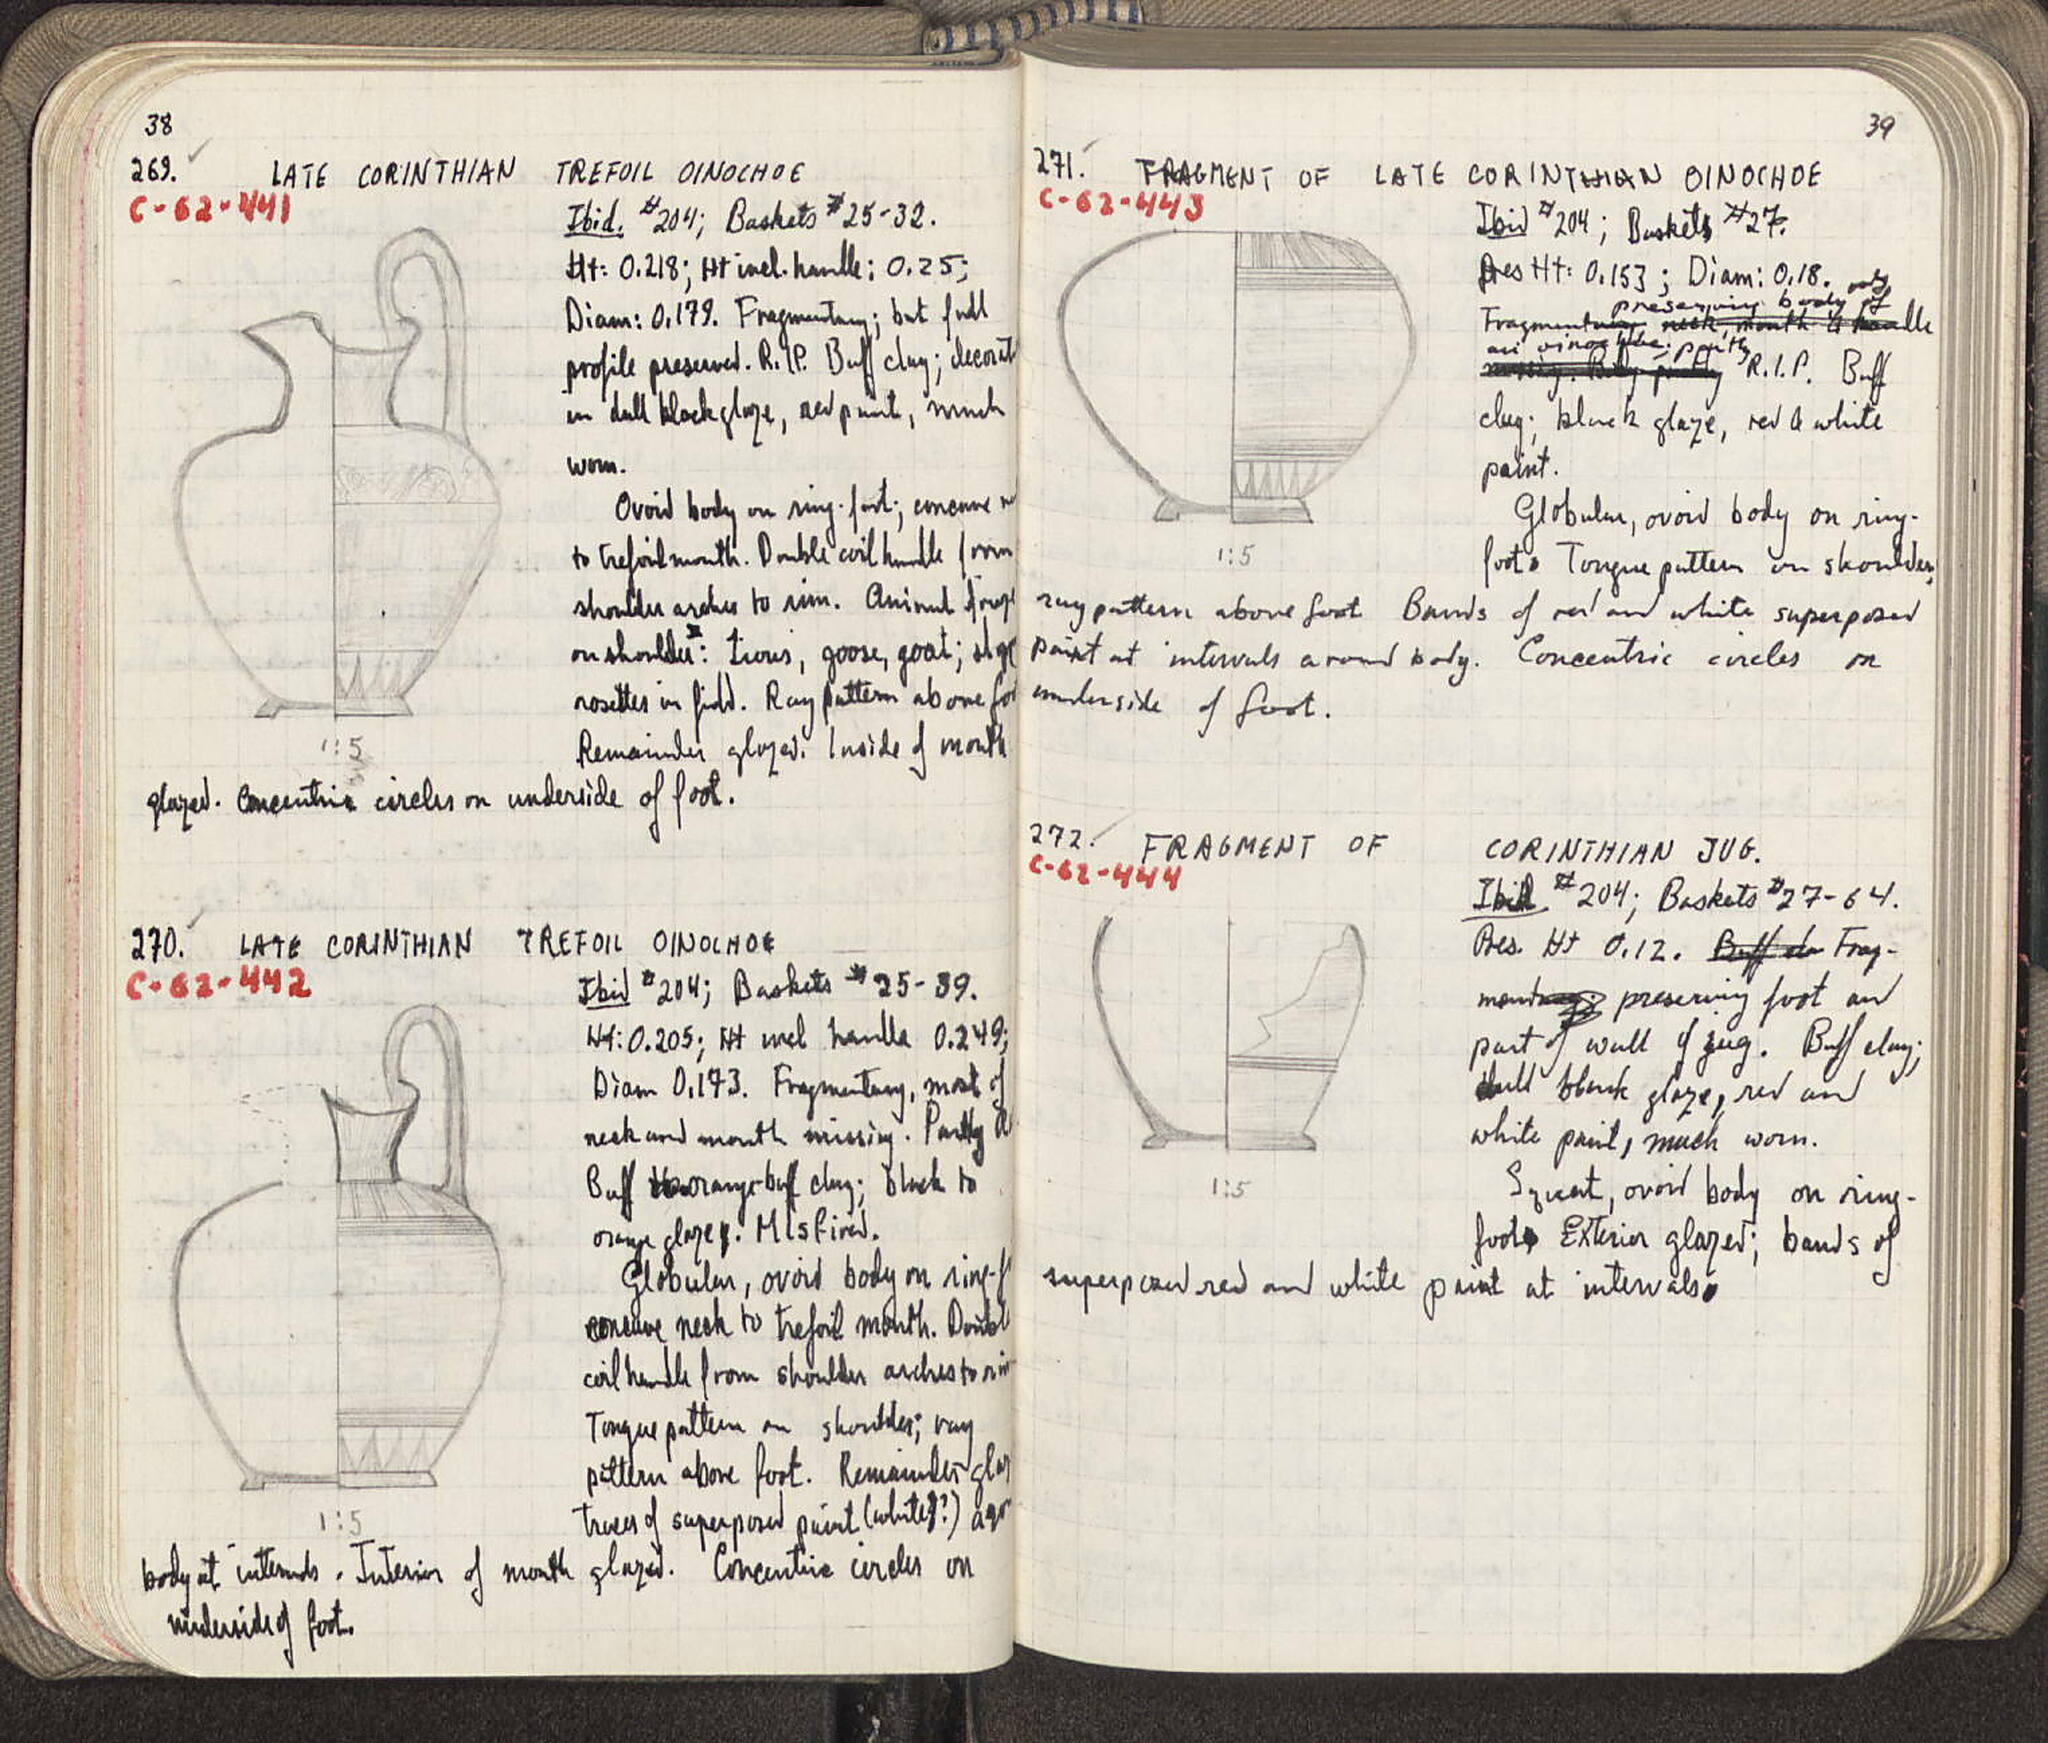 38
269. LATE CORINTHIAN TREFOIL OINOCHOE
C-62-441
Ibid. #204; Baskets #25-32.
Ht: 0.218; Ht incl. handle: 0.25;
Diam: 0.179. Fragmentary; but full
profile preserved. R.I.P. Buff clay; decorat
in dull black glaze, red paint, much
worn.
Ovoid body on ring-foot; concave
to trefoil mouth. Double coil handle from
shoulder arches to rim. Animal
on shoulder: Lions, goose, goat;
rosettes in field. Ray pattern above foo
Remainder glazed. Inside of mouth
1:5
glazed. Concentric circles on underside of foot.
270. LATE CORINTHIAN TREFOIL OINOCHOE
C-62-442
Ibid #204; Baskets #25-39.
Ht: 0.205; Ht incl handle 0.249;
Diam 0.173. Fragmentary, most of
neck and mouth missing. Partly
Buff orange-buff clay; black to
orange glaze. Misfired.
Globular, ovoid body on ring-f
concave neck to trefoil mouth. Doubl
coil handle from shoulder arches to rim
Tongue pattern on shoulder; ray
pattern above foot. Remainder glaz
traces of superposed paint (white?)
1:5
body at intervals. Interior of mouth glazed. Concentric circles on
underside of foot.
39
271. FRAGMENT OF LATE CORINTHIAN OINOCHOE
C-62-443
Ibid #204; Baskets #27.
Pres Ht: 0.153; Diam: 0.18.
only
preserving body of
Fragmentary neck, mouth & handle
an oinochoe; partly
missing. Body partly R.I.P. Buff
clay; black glaze, red & white
paint.
Globular, ovoid body on ring-
foot. Tongue pattern on shoulder,
1:5
ray pattern above foot Bands of red and white superposed
paint at intervals around body. Concentric circles on
underside of foot.
272. FRAGMENT OF CORINTHIAN JUG.
C-62-444
Ibid #204; Baskets #27-64.
Pres. Ht 0.12. Buff cla Frag-
ment preserving foot and
part of wall of jug. Buff clay;
dull black glaze, red and
white paint, much worn.
Squat, ovoid body on ring-
foot. Exterior glazed; bands of
1:5
superposed red and white paint at intervals.